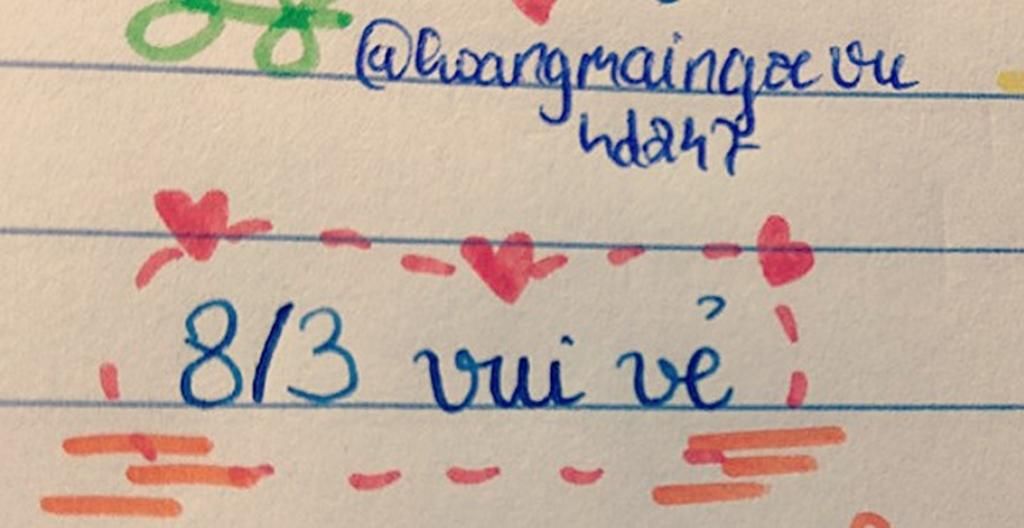 @hoangmaingocvu
hd247
8/3 vui vẻ